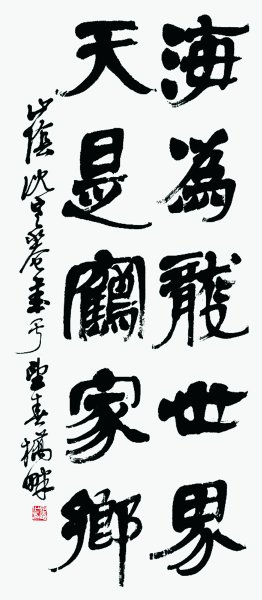 海為龍世界
天是鶴家鄉
山陰沈定菴書于望春橋畔